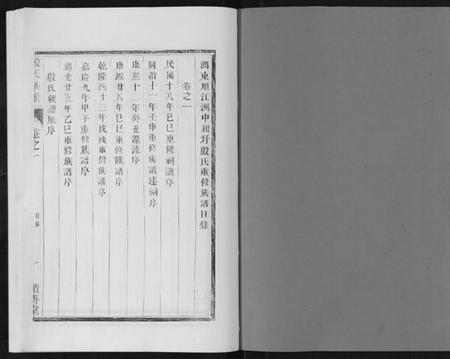 潤東順江洲中和圩殷氏重修族譜目錄
卷之一
民國十八年己巳重修祠譜序
同治十一年壬申重修族譜建祠序
康熙十二年癸丑源流序
康熙廿八年己巳重修族譜序
乾隆四十三年戊戌重修族譜序
嘉慶九年甲子重修族譜序
道光廿五年乙巳重修族譜序
殷氏族譜原序
殷氏族譜
卷之一
目錄
一